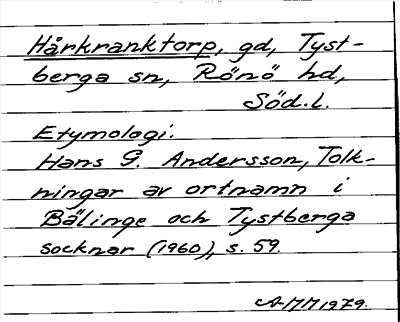 Hårkranktorp, gd, Tyst-
berga sn, Rönö hd,
Söd.l.
Etymologi:
Hans G. Andersson, Tolk-
ningar av ortnamn i
Bälinge och Tystberga
socknar (1960), s. 59.
AMM 1979.